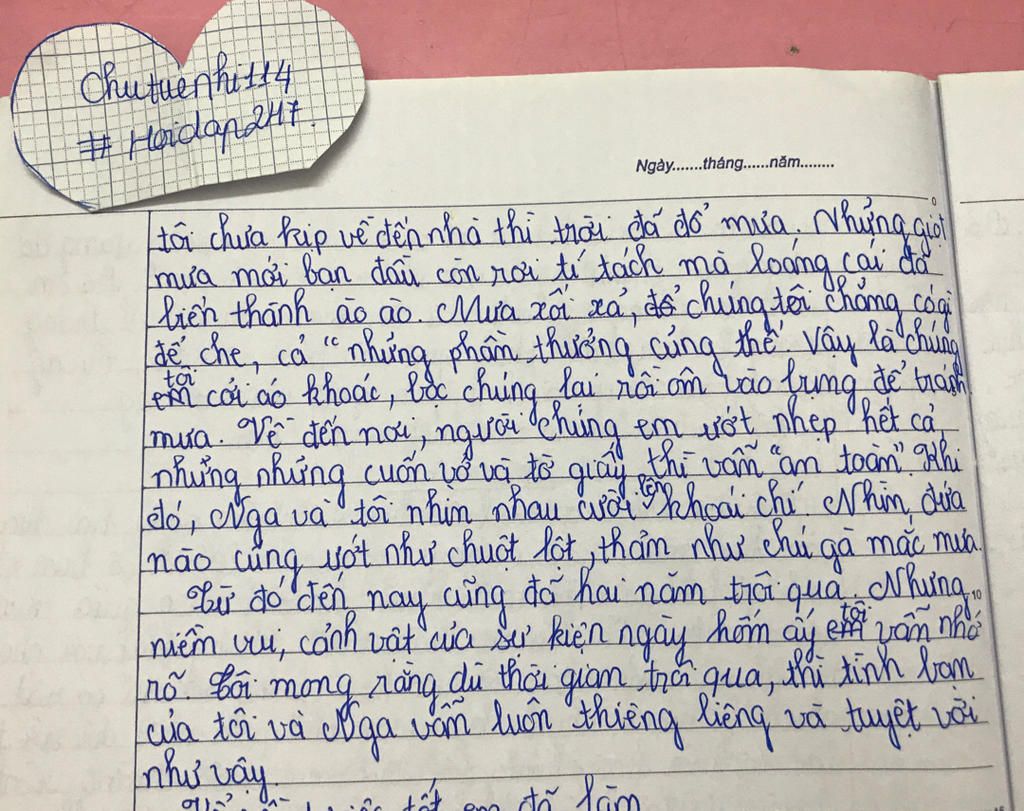 Chutuenhi114
# Hoidap247.
Ngày.......tháng......năm........
tôi chưa kịp về đến nhà thì trời đã đổ mưa. Những giọt
mưa mới ban đầu còn rơi tí tách mà loáng cái đã
biến thành ào ào. Mưa xối xả, để chúng tôi chẳng có gì
để che, cả "những phần thưởng cũng thế. Vậy là chúng
tôi
em cởi áo khoác, bọc chúng lại rồi ôm vào bụng để tránh
mưa. Về đến nơi, người chúng em ướt nhẹp hết cả,
nhưng những cuốn vở và tờ giấy thì vẫn "an toàn". Khi
đó, Nga và tôi nhìn nhau cười lên khoái chí. Nhìn đứa
nào cũng ướt như chuột lột, thảm như chú gà mắc mưa.
Từ đó đến nay cũng đã hai năm trôi qua. Nhưng
10
niềm vui, cảnh vật của sự kiện ngày hôm ấy em tôi vẫn nhớ
rõ. Tôi mong rằng dù thời gian trôi qua, thì tình bạn
của tôi và Nga vẫn luôn thiêng liêng và tuyệt vời
như vậy.
việc tốt em đã làm